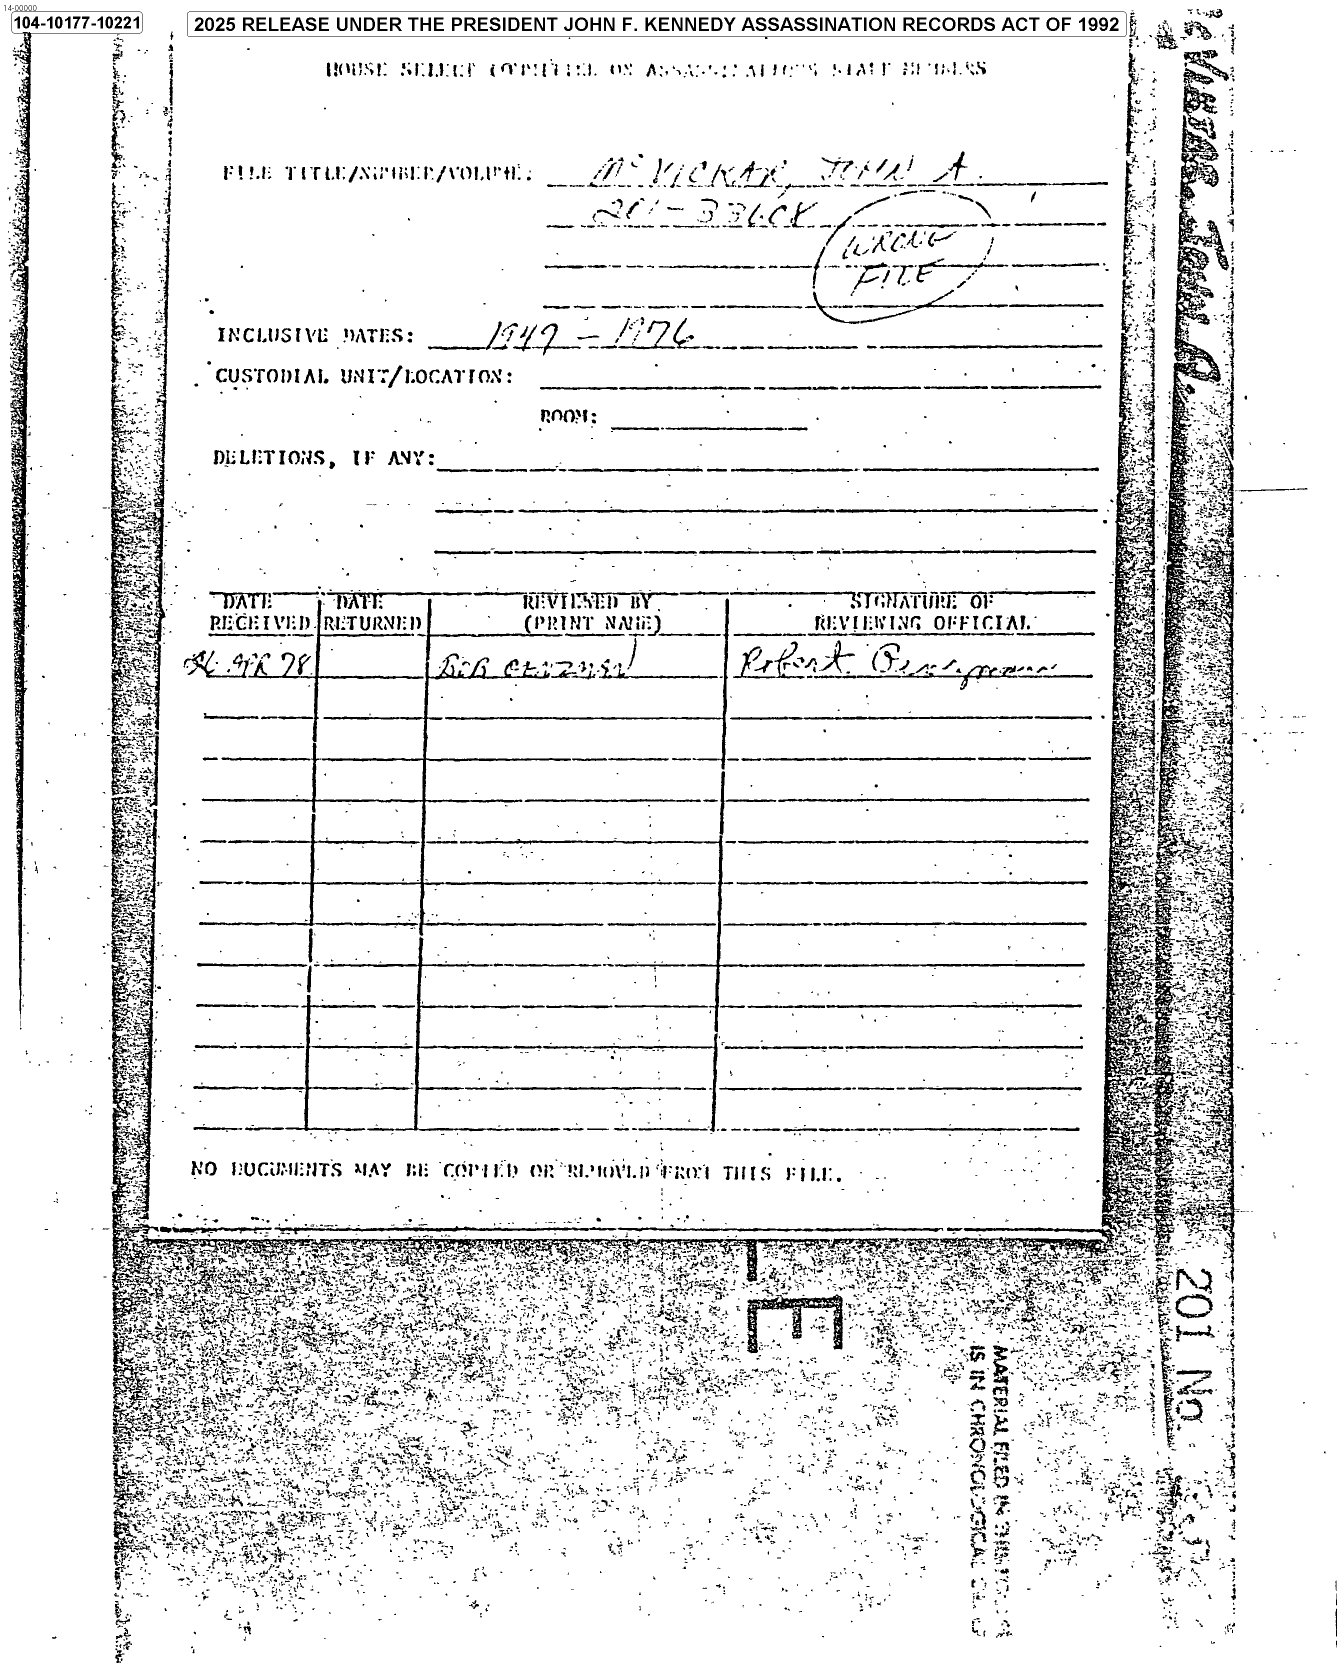 14-00000
104-10177-10221
2025 RELEASE UNDER THE PRESIDENT JOHN F. KENNEDY ASSASSINATION RECORDS ACT OF 1992
HOUSE SELECT COMMITTEE ON ASSASSINATIONS STAFF MEMBERS
FILE TITLE/NUMBER/VOLUME: McVICKAR, JOHN A.
201-33608
WRONG
FILE
INCLUSIVE DATES: 1947 - 1976
CUSTODIAL UNIT/LOCATION:
ROOM:
DELETIONS, IF ANY:
DATE RECEIVED
DATE RETURNED
REVIEWED BY (PRINT NAME)
SIGNATURE OF REVIEWING OFFICIAL
26 APR 78
BOB GENZMAN
Robert Genzman
NO DOCUMENTS MAY BE COPIED OR REMOVED FROM THIS FILE.
McVICKAR, JOHN A.
201 No.
E
MATERIAL FILED IN THIS
IS IN CHRONOLOGICAL